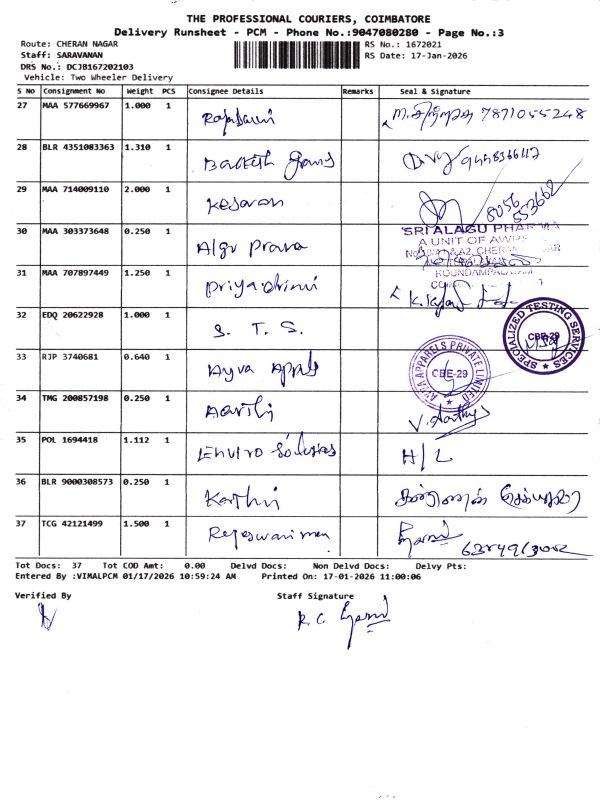 THE PROFESSIONAL COURIERS, COIMBATORE
Delivery Runsheet - PCM - Phone No.:9047080280 - Page No.:3
Route: CHERAN NAGAR
RS No.: 1672021
Staff: SARAVANAN
RS Date: 17-Jan-2026
DRS No.: DCJB167202103
Vehicle: Two Wheeler Delivery
S No Consignment No Weight PCS Consignee Details Remarks Seal & Signature
27 MAA 577669967 1.000 1 7871055248
28 BLR 4351083363 1.310 1
29 MAA 714009110 2.000 1 Kesavan 8056
553662
30 MAA 303373648 0.250 1 Algu Prava
SRI ALAGU PHARMA
A UNIT OF
31 MAA 707897449 1.250 1
KOUNDAMPALAYAM
32 EDQ 20622928 1.000 1 S. T. S. SPECIALIZED TESTING SERVICES CBE-29
33 RJP 3740681 0.640 1 Ayva Appls AYVA APPARELS PRIVATE LIMITED CBE-29
34 TMG 200857198 0.250 1 Aarthi V. Aarthy
35 POL 1694418 1.112 1 Enviro Solutions H/L
36 BLR 9000308573 0.250 1 Karthi
37 TCG 42121499 1.500 1
Tot Docs: 37 Tot COD Amt: 0.00 Delvd Docs: Non Delvd Docs: Delvy Pts:
Entered By :VIMALPCM 01/17/2026 10:59:24 AM Printed On: 17-01-2026 11:00:06
Verified By Staff Signature
R. C.